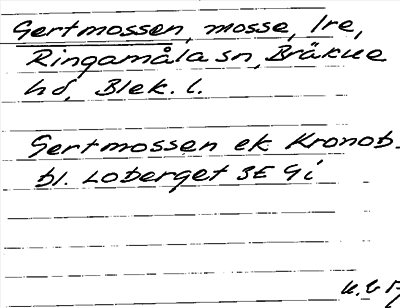 Gertmossen, mosse, Ire,
Ringamåla sn, Bräkne
hd, Blek. l.
Gertmossen ek Kronob.
bl. Loberget 3E Gi